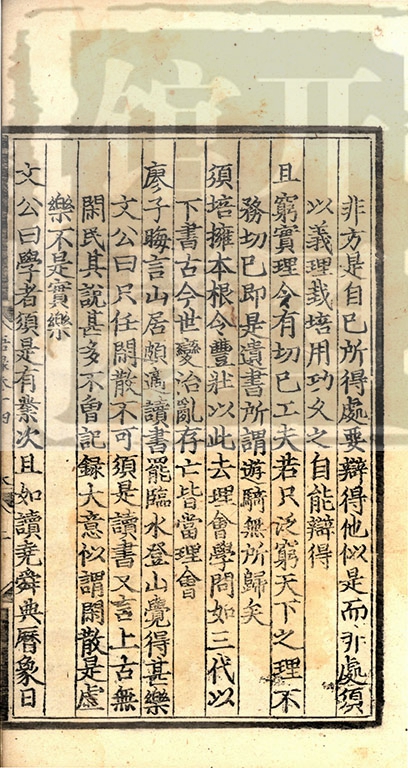 非方是自己所得處要辯得他似是而非處須
以義理栽培用功久之自能辯得
且窮實理令有切己工夫若只泛窮天下之理不
務切己即是遺書所謂遊騎無所歸矣
須培擁本根令豐壯以此去理會學問如三代以
下書古今世變治亂存亡皆當理會
廖子晦言山居頗適讀書罷臨水登山覺得甚樂
文公曰只任閑散不可須是讀書又言上古無
閑民其說甚多不曽記録大意似謂閑散是虛
樂不是實樂
文公曰學者須是有業次且如讀堯舜典曆象日